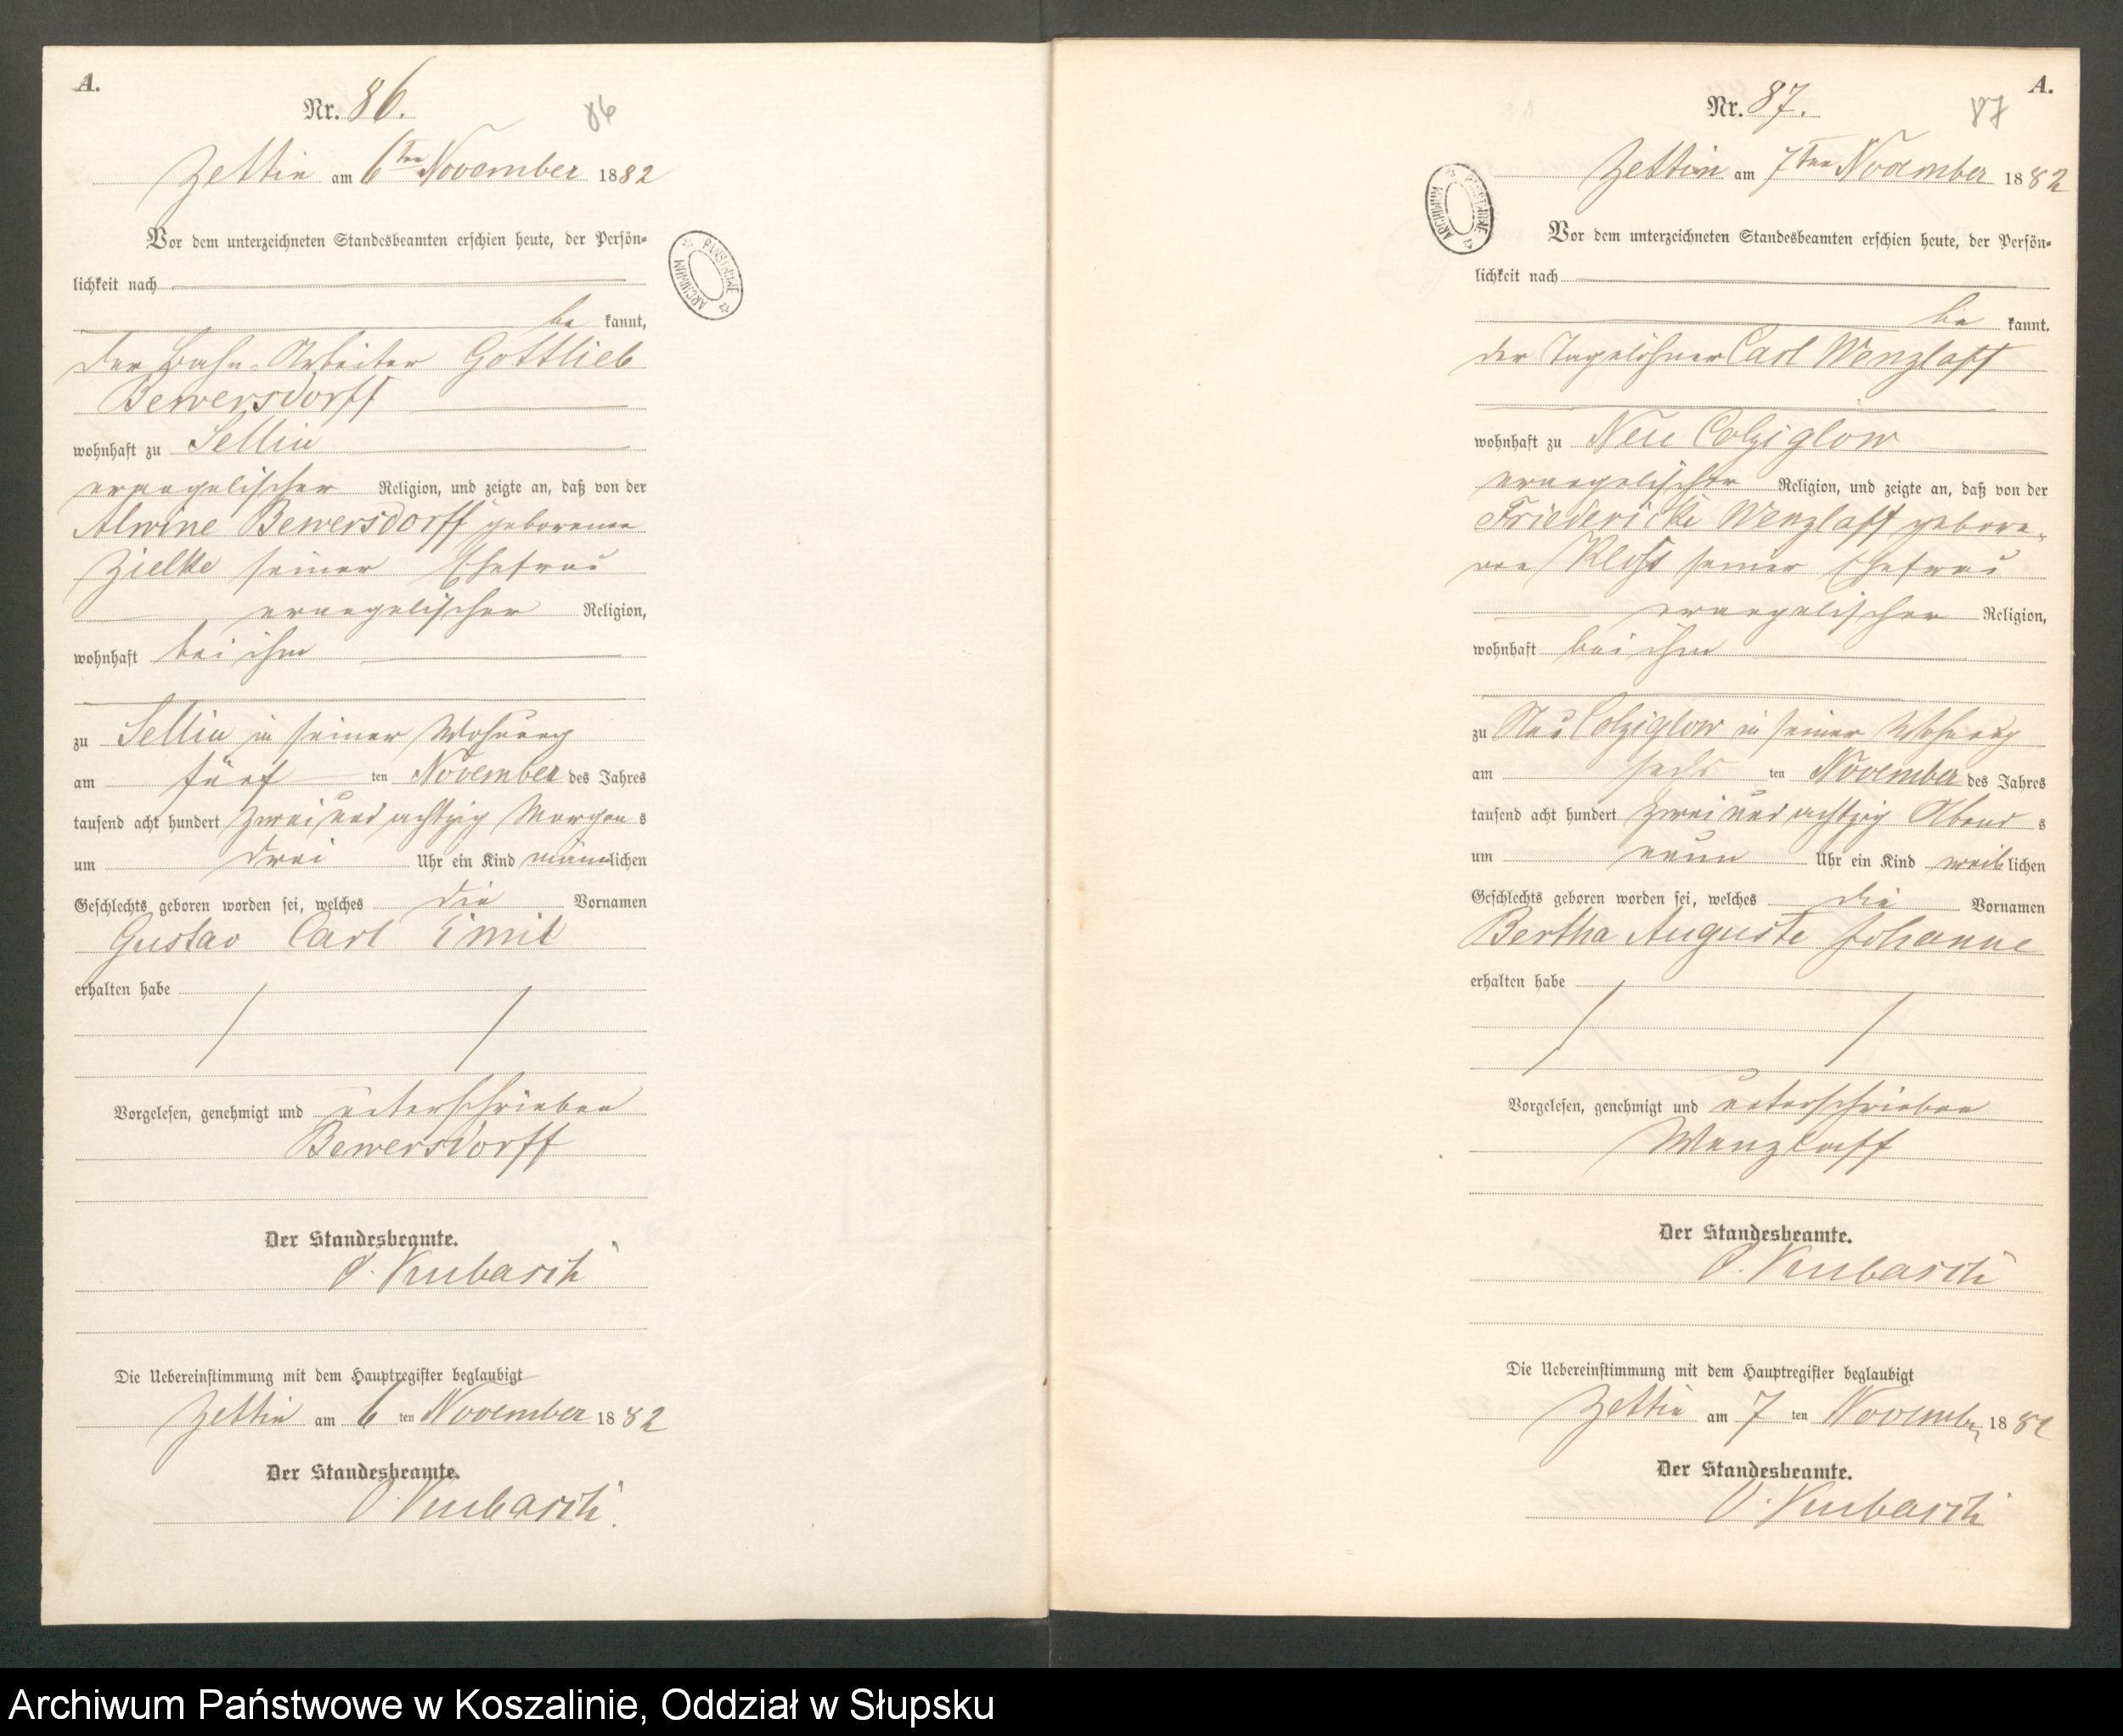 A.
Nr. 86.
86
Zettin am 6ten November 1882
Vor dem unterzeichneten Standesbeamten erschien heute, der Persön-
lichkeit nach
be kannt,
der Bahn-Arbeiter Gottlieb
Bewersdorff
wohnhaft zu Sellin
evangelischer Religion, und zeigte an, daß von der
Alwine Bewersdorff geborenen
Zielke seiner Ehefrau
evangelischer Religion,
wohnhaft bei ihm
zu Sellin in seiner Wohnung
am fünf ten November des Jahres
tausend acht hundert zwei und achtzig Morgens
um drei Uhr ein Kind männlichen
Geschlechts geboren worden sei, welches die Vornamen
Gustav Carl Emil
erhalten habe
Vorgelesen, genehmigt und unterschrieben
Bewersdorff
Der Standesbeamte.
Kubasch
Die Uebereinstimmung mit dem Hauptregister beglaubigt
Zettin am 6 ten November 1882
Der Standesbeamte.
Kubasch
ARCHIWUM PAŃSTWOWE
A.
Nr. 87.
87
Zettin am 7ten November 1882
ARCHIWUM PAŃSTWOWE
Vor dem unterzeichneten Standesbeamten erschien heute, der Persön-
lichkeit nach
be kannt,
der Tagelöhner Carl Wenzlaff
wohnhaft zu Neu Colziglow
evangelischer Religion, und zeigte an, daß von der
Friedericke Wenzlaff gebore-
nen seiner Ehefrau
evangelischer Religion,
wohnhaft bei ihm
zu Neu Colziglow in seiner Wohnung
am sechs ten November des Jahres
tausend acht hundert zwei und achtzig Abend s
um neun Uhr ein Kind weiblichen
Geschlechts geboren worden sei, welches die Vornamen
Bertha Auguste Johanne
erhalten habe
Vorgelesen, genehmigt und unterschrieben
Wenzlaff
Der Standesbeamte.
Kubasch
Die Uebereinstimmung mit dem Hauptregister beglaubigt
Zettin am 7 ten November 1882
Der Standesbeamte.
Kubasch
Archiwum Państwowe w Koszalinie, Oddział w Słupsku